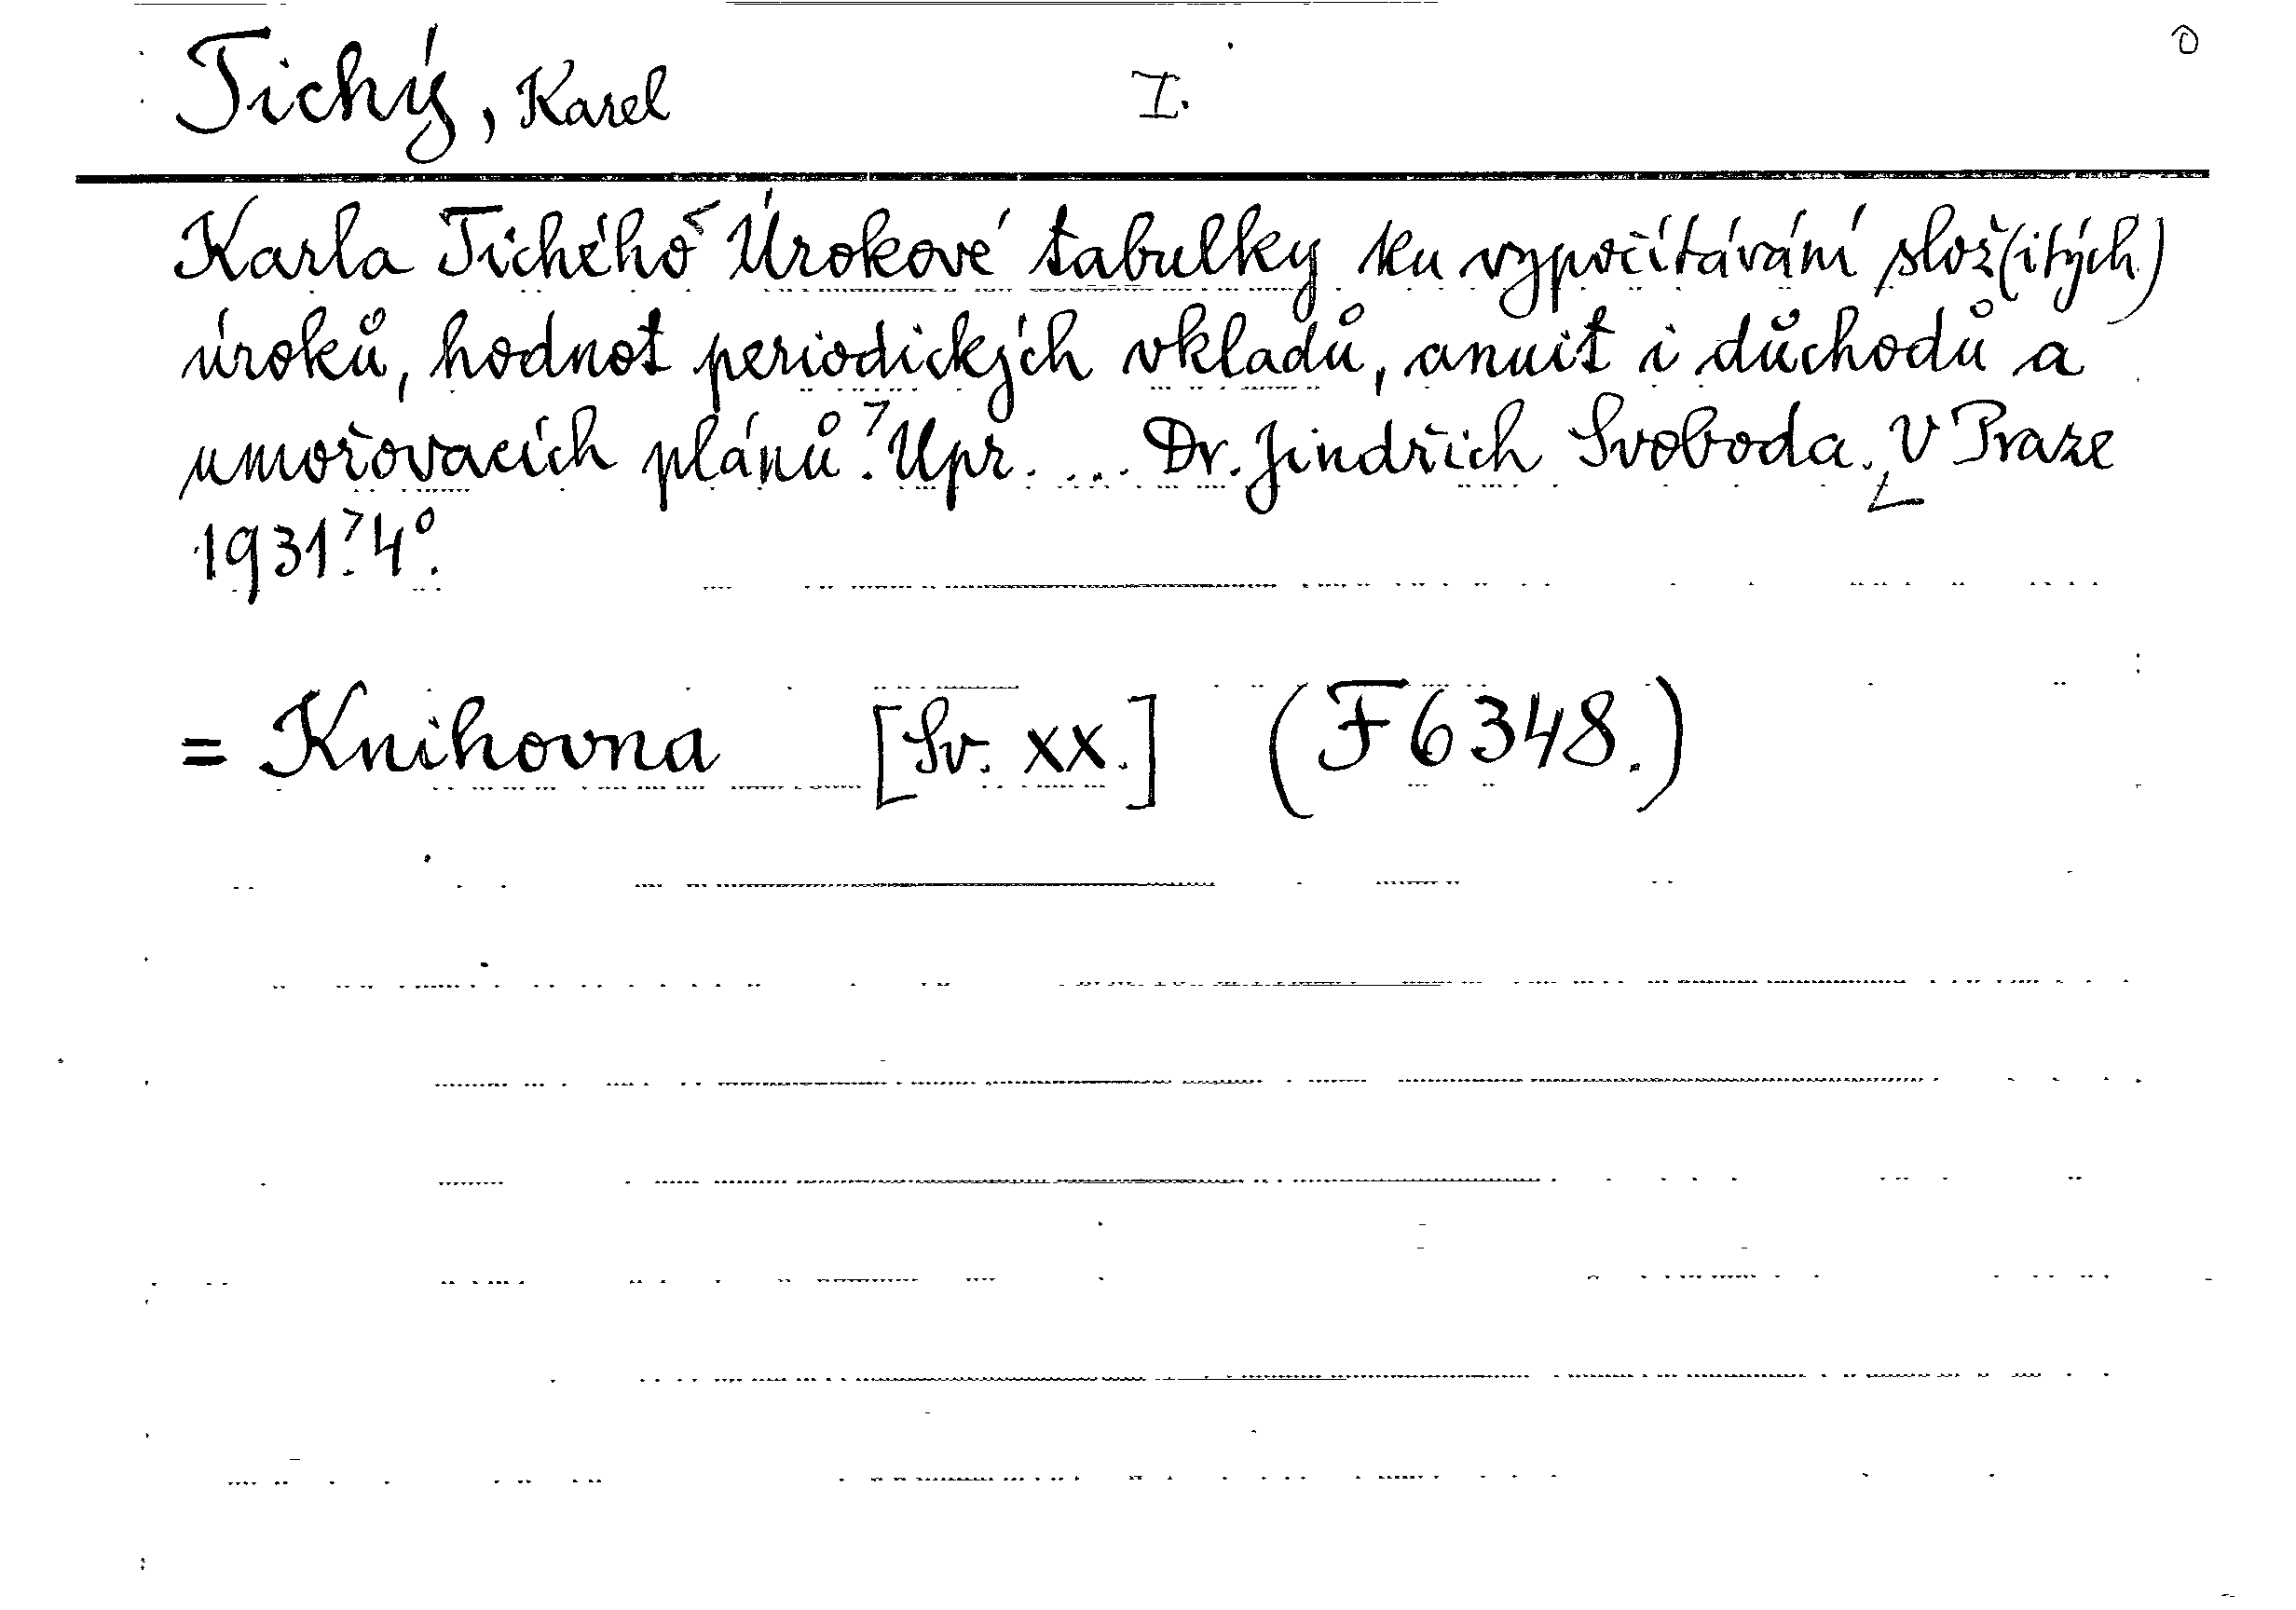 Tichý, Karel I.
Karla Tichého Úrokové tabulky ku vypočítávání slož(itých)
úroků, hodnot periodických vkladů, anuit i důchodů a
umořovacích plánů. Upr. ... Dr. Jindřich Svoboda. V Praze
1931. 4°.
= Knihovna [Sv. XX.] (F 6348.)